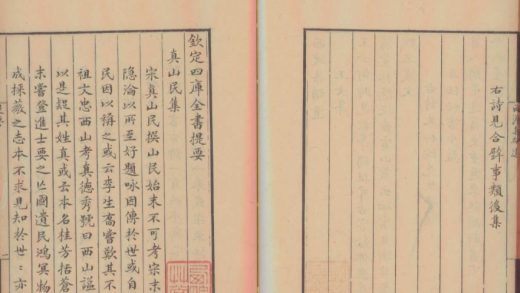 右詩見合辥事類後集
欽定四庫全書提要
真山民集
宋真山民撰山民始末不可考宋末
隐淪以所至好題咏因傳於世或自
民因以稱之或云李生喬嘗歎其不
祖文忠西山考真德秀號曰西山諡
以是疑其姓真或云本名桂芳括蒼
末嘗登進士要之亡國遺民鴻冥物
成採薇之志本不求見知於世亦